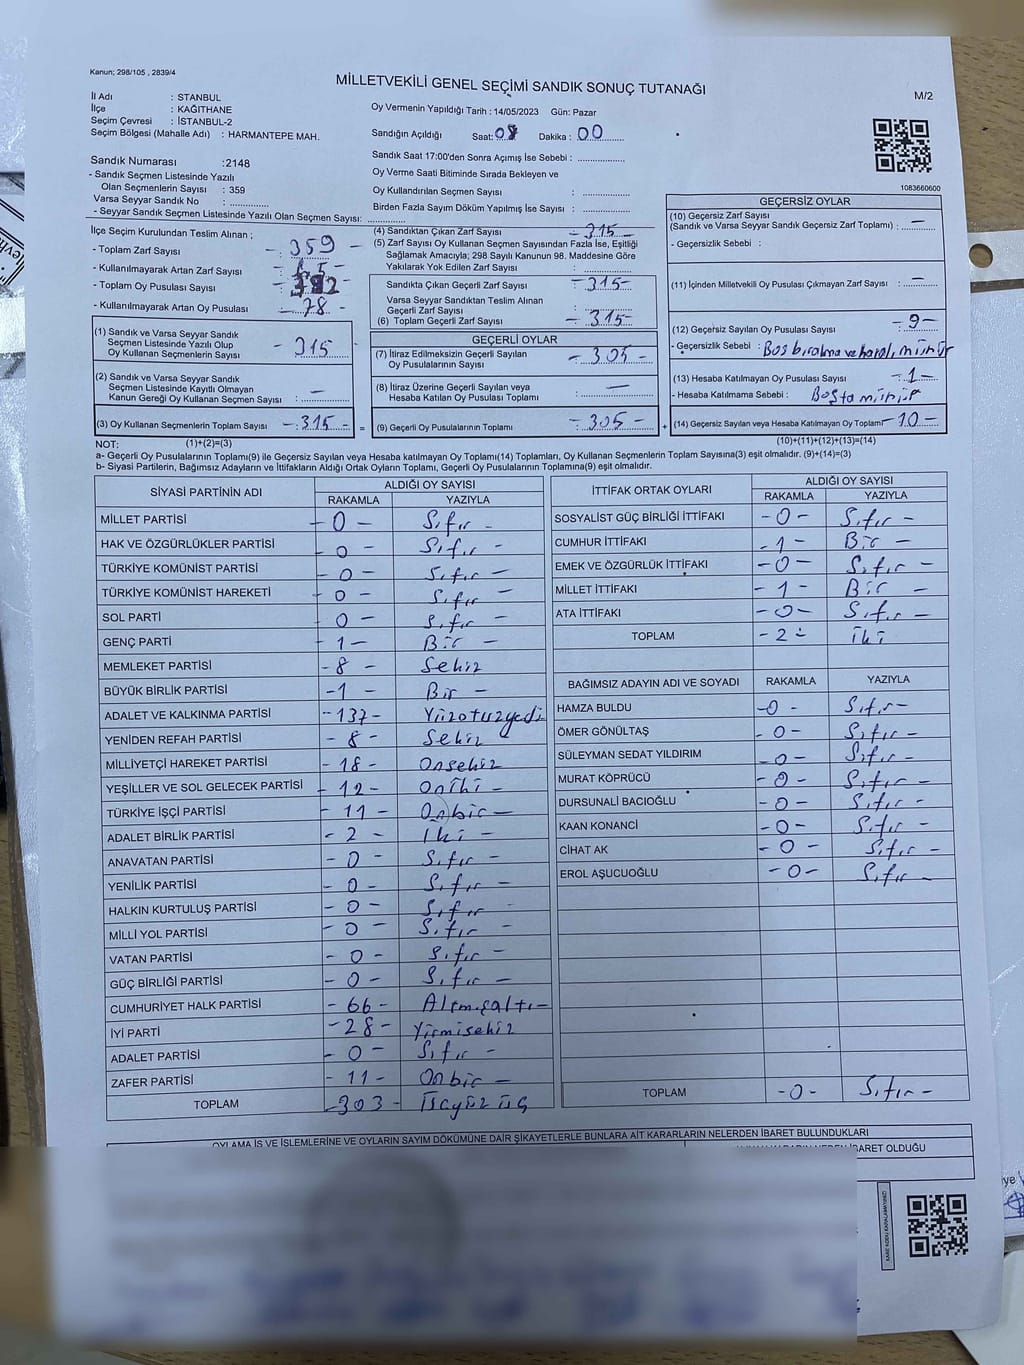 Kanun; 298/105 , 2839/4
MİLLETVEKİLİ GENEL SEÇİMİ SANDIK SONUÇ TUTANAĞI
M/2
İl Adı : STANBUL
İlçe : KAĞITHANE
Seçim Çevresi : İSTANBUL-2
Seçim Bölgesi (Mahalle Adı) : HARMANTEPE MAH.
Sandık Numarası :2148
- Sandık Seçmen Listesinde Yazılı
Olan Seçmenlerin Sayısı : 359
Varsa Seyyar Sandık No : ..............
- Seyyar Sandık Seçmen Listesinde Yazılı Olan Seçmen Sayısı: ..............
Oy Vermenin Yapıldığı Tarih : 14/05/2023 Gün: Pazar
Sandığın Açıldığı Saat: 08 Dakika : 00
Sandık Saat 17:00'den Sonra Açımış İse Sebebi : ..............
Oy Verme Saati Bitiminde Sırada Bekleyen ve
Oy Kullandırılan Seçmen Sayısı : ..............
Birden Fazla Sayım Döküm Yapılmış İse Sayısı : ..............
1083660600
İlçe Seçim Kurulundan Teslim Alınan ;
- Toplam Zarf Sayısı : - 359 -
- Kullanılmayarak Artan Zarf Sayısı
- Toplam Oy Pusulası Sayısı
- Kullanılmayarak Artan Oy Pusulası : - 78 -
(1) Sandık ve Varsa Seyyar Sandık
Seçmen Listesinde Yazılı Olup
Oy Kullanan Seçmenlerin Sayısı - 315
(2) Sandık ve Varsa Seyyar Sandık
Seçmen Listesinde Kayıtlı Olmayan
Kanun Gereği Oy Kullanan Seçmen Sayısı : -
(3) Oy Kullanan Seçmenlerin Toplam Sayısı - 315 -
=
(4) Sandıktan Çıkan Zarf Sayısı - 315 -
(5) Zarf Sayısı Oy Kullanan Seçmen Sayısından Fazla İse, Eşitliği
Sağlamak Amacıyla; 298 Sayılı Kanunun 98. Maddesine Göre
Yakılarak Yok Edilen Zarf Sayısı : ..............
Sandıkta Çıkan Geçerli Zarf Sayısı : - 315 -
Varsa Seyyar Sandıktan Teslim Alınan
Geçerli Zarf Sayısı : ..............
(6) Toplam Geçerli Zarf Sayısı : - 315 -
GEÇERLİ OYLAR
(7) İtiraz Edilmeksizin Geçerli Sayılan
Oy Pusulalarının Sayısı : - 305 -
(8) İtiraz Üzerine Geçerli Sayılan veya
Hesaba Katılan Oy Pusulası Toplamı : -
(9) Geçerli Oy Pusulalarının Toplamı : - 305 -
+
GEÇERSİZ OYLAR
(10) Geçersiz Zarf Sayısı
(Sandık ve Varsa Seyyar Sandık Geçersiz Zarf Toplamı) : -
- Geçersizlik Sebebi :
(11) İçinden Milletvekili Oy Pusulası Çıkmayan Zarf Sayısı : -
(12) Geçersiz Sayılan Oy Pusulası Sayısı : - 9 -
- Geçersizlik Sebebi :
(13) Hesaba Katılmayan Oy Pusulası Sayısı : - 1 -
- Hesaba Katılmama Sebebi :
(14) Geçersiz Sayılan veya Hesaba Katılmayan Oy Toplamı - 10 -
NOT: (1)+(2)=(3)
(10)+(11)+(12)+(13)=(14)
a- Geçerli Oy Pusulalarının Toplamı(9) ile Geçersiz Sayılan veya Hesaba katılmayan Oy Toplamı(14) Toplamları, Oy Kullanan Seçmenlerin Toplam Sayısına(3) eşit olmalıdır. (9)+(14)=(3)
b- Siyasi Partilerin, Bağımsız Adayların ve İttifakların Aldığı Ortak Oyların Toplamı, Geçerli Oy Pusulalarının Toplamına(9) eşit olmalıdır.
SİYASİ PARTİNİN ADI ALDIĞI OY SAYISI
RAKAMLA YAZIYLA
MİLLET PARTİSİ - 0 - Sıfır -
HAK VE ÖZGÜRLÜKLER PARTİSİ 0 - Sıfır -
TÜRKİYE KOMÜNİST PARTİSİ - 0 - Sıfır -
TÜRKİYE KOMÜNİST HAREKETİ 0 - Sıfır
SOL PARTİ 0 - Sıfır -
GENÇ PARTİ - 1 - Bir -
MEMLEKET PARTİSİ - 8 - Sekiz
BÜYÜK BİRLİK PARTİSİ - 1 - Bir -
ADALET VE KALKINMA PARTİSİ - 137 - Yüzotuzyedi
YENİDEN REFAH PARTİSİ - 8 - Sekiz
MİLLİYETÇİ HAREKET PARTİSİ - 18 - Onsekiz
YEŞİLLER VE SOL GELECEK PARTİSİ - 12 - Oniki -
TÜRKİYE İŞÇİ PARTİSİ - 11 - Onbir -
ADALET BİRLİK PARTİSİ - 2 - İki -
ANAVATAN PARTİSİ - 0 - Sıfır -
YENİLİK PARTİSİ - 0 - Sıfır -
HALKIN KURTULUŞ PARTİSİ - 0 - Sıfır -
MİLLİ YOL PARTİSİ - 0 - Sıfır -
VATAN PARTİSİ - 0 - Sıfır -
GÜÇ BİRLİĞİ PARTİSİ - 0 - Sıfır -
CUMHURİYET HALK PARTİSİ - 66 - Altmışaltı -
İYİ PARTİ - 28 - Yirmisekiz
ADALET PARTİSİ - 0 - Sıfır -
ZAFER PARTİSİ - 11 - Onbir -
TOPLAM - 303 - Üçyüz üç
İTTİFAK ORTAK OYLARI ALDIĞI OY SAYISI
RAKAMLA YAZIYLA
SOSYALİST GÜÇ BİRLİĞİ İTTİFAKI - 0 - Sıfır -
CUMHUR İTTİFAKI - 1 - Bir -
EMEK VE ÖZGÜRLÜK İTTİFAKI - 0 - Sıfır -
MİLLET İTTİFAKI - 1 - Bir -
ATA İTTİFAKI - 0 - Sıfır -
TOPLAM - 2 - İki
BAĞIMSIZ ADAYIN ADI VE SOYADI RAKAMLA YAZIYLA
HAMZA BULDU - 0 - Sıfır -
ÖMER GÖNÜLTAŞ - 0 - Sıfır -
SÜLEYMAN SEDAT YILDIRIM - 0 - Sıfır -
MURAT KÖPRÜCÜ - 0 - Sıfır -
DURSUNALİ BACIOĞLU - 0 - Sıfır -
KAAN KONANCİ - 0 - Sıfır -
CİHAT AK - 0 - Sıfır -
EROL AŞUCUOĞLU - 0 - Sıfır -
TOPLAM - 0 - Sıfır -
OYLAMA İŞ VE İŞLEMLERİNE VE OYLARIN SAYIM DÖKÜMÜNE DAİR ŞİKAYETLERLE BUNLARA AİT KARARLARIN NELERDEN İBARET BULUNDUKLARI
İBARET OLDUĞU